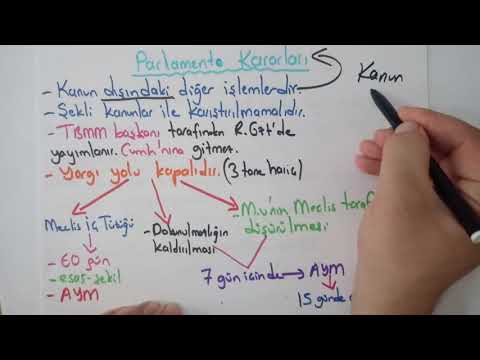 Parlamento Kararları
Kanun
- Kanun dışındaki diğer işlemlerdir.
- Şekli kanunlar ile karıştırılmamalıdır.
- TBMM başkanı tarafından R.Gzt'de
yayımlanır. Cumh'nına gitmez.
- Yargı yolu kapalıdır. (3 tane hariç)
Meclis İç Tüzüğü
- Dokunulmazlığın
kaldırılması
- M.v'nin Meclis taraf
düşürülmesi
→ 60 gün
- esas-şekil
- AYM
7 gün içinde → AYM
15 günde